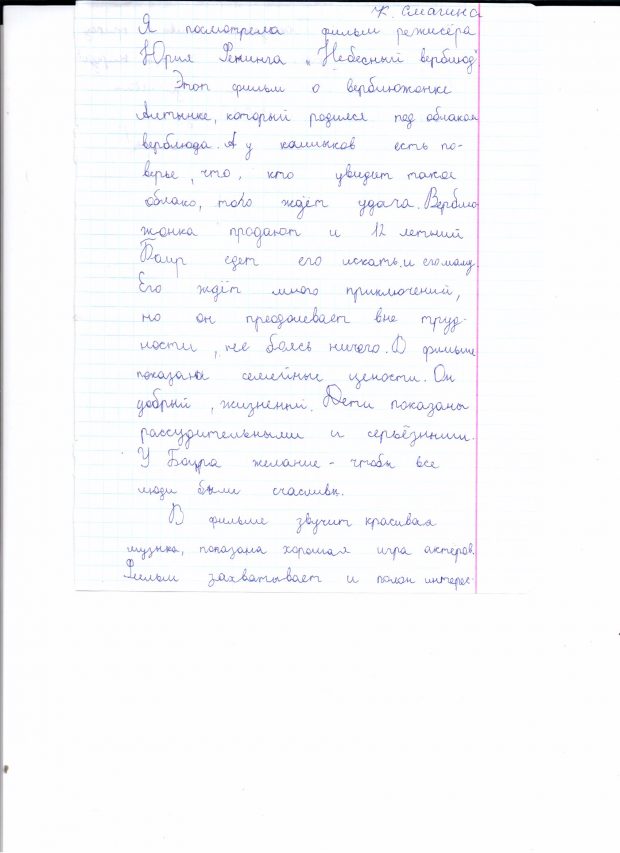 К. Смагина
Я посмотрела фильм режисёра
Юрия Фенинга „Небесный верблюд"
Этот фильм о верблюжонке
Алтынке, который родился под облаком
верблюда. А у калмыков есть по-
верье, что, кто увидит такое
облако, того ждёт удача. Верблю
жонка продают и 12 летний
Баир едет его искать. и его маму.
Его ждёт много приключений,
но он преодолевает все труд-
ности, не боясь ничего. В фильме
показаны семейные цености. Он
добрый, жизненный. Дети показаны
рассудительными и серьёзными.
У Баира желание - чтобы все
люди были счастливы.
В фильме звучит красивая
музыка, показана хорошая игра актеров.
Фильм захватывает и полон интерес-